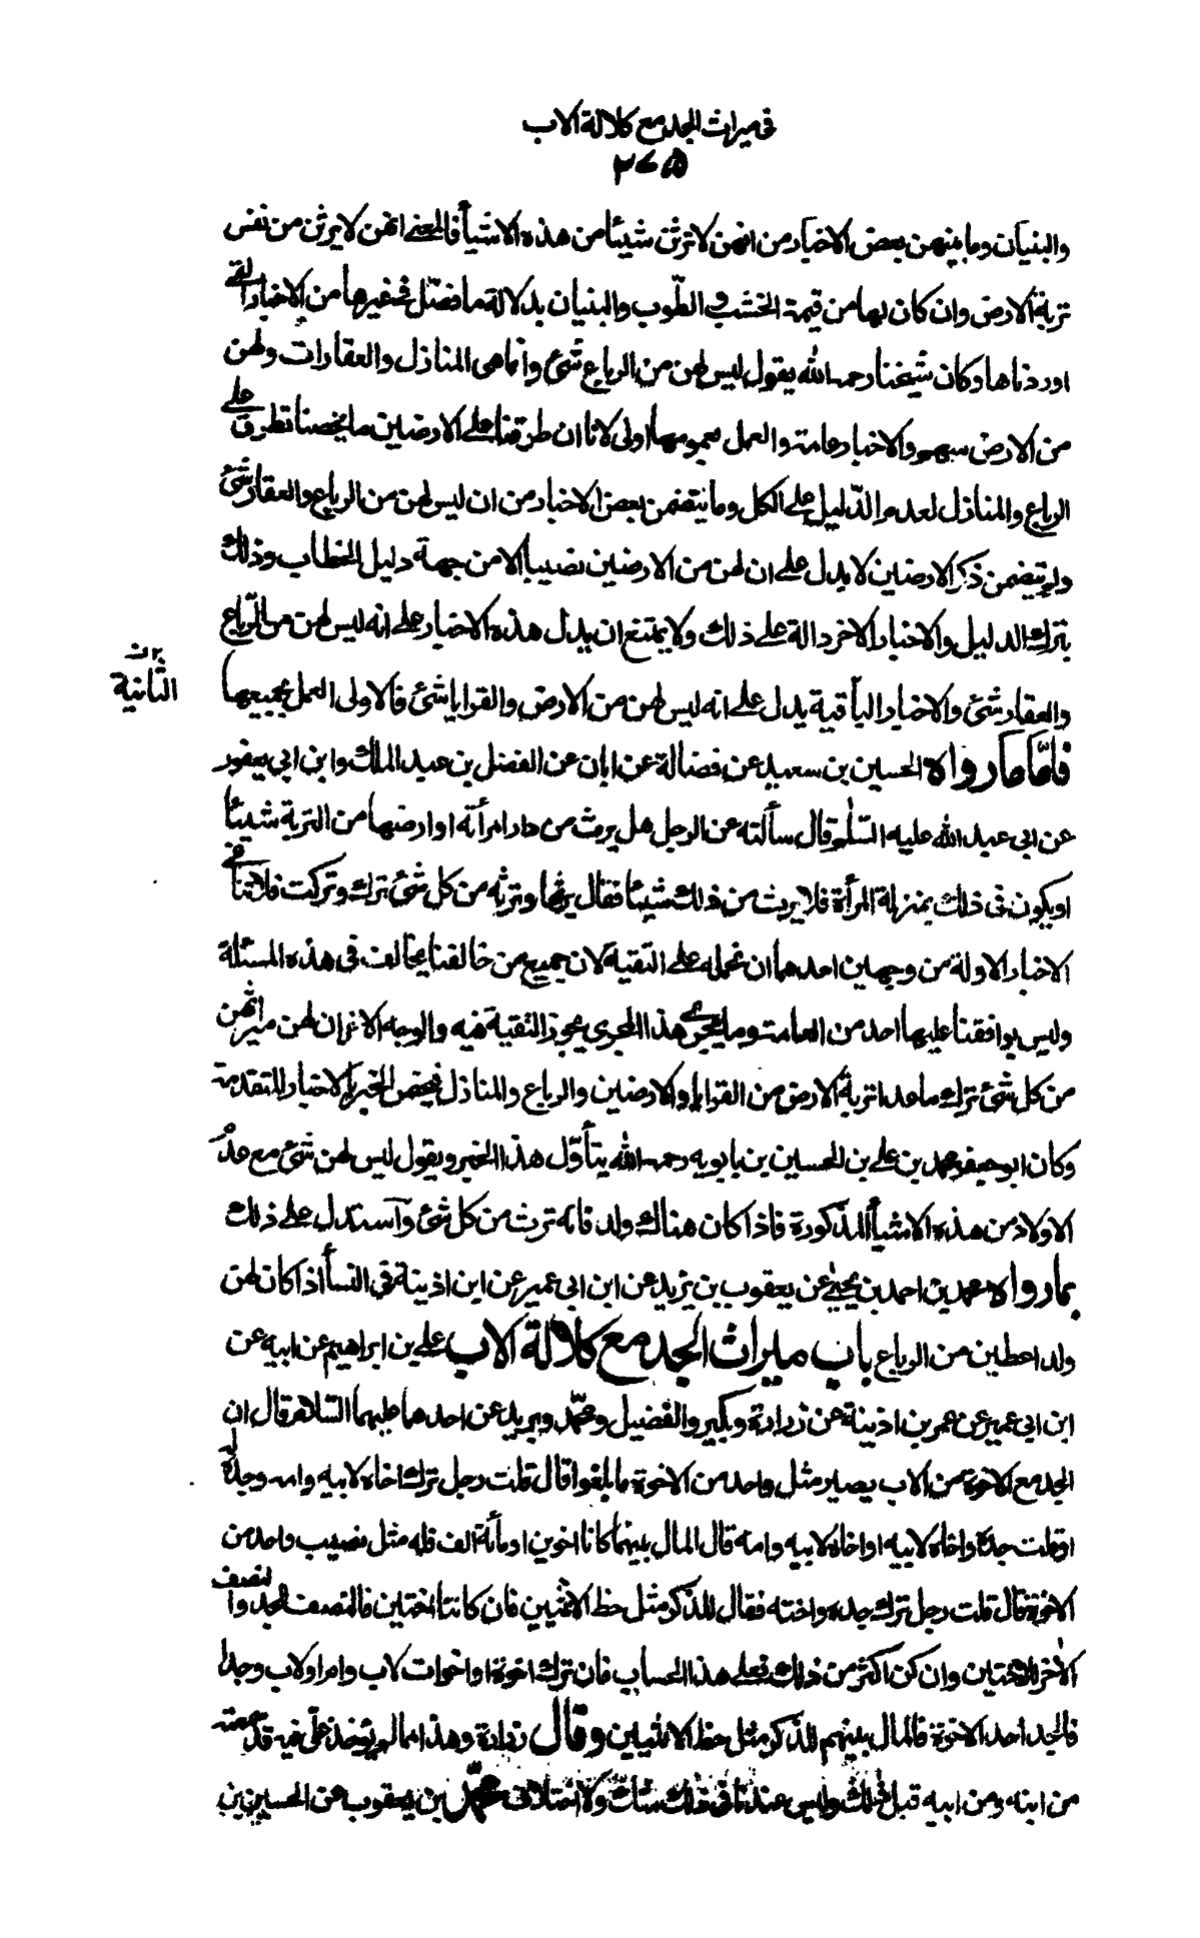 في ميراث الجد مع كلالة الاب
٣٦٥
والبنيان وما بينهن بعض الاخبار من انهن لا ترثن شيئا من هذه الاشيأ فالمعنى انهن لا يرثن من نفس
تربة الارض وان كان لهامن قيمة الخشب و الطّوب والبنيان بدلالة ما فصّل في غيرها من الاخبار التي
اوردناها وكان شيخنا رحمه الله يقول ليس لهن من الرباع شئ وانما هى المنازل والعقارات ولهن
من الارض سهم والاخبار عامة والعمل بعمومها اولى لانا ان طرقنا على الارضين ما يخصنا تطرق على
الرباع والمنازل لعدم الدّليل على الكل وما يتضمن بعض الاخبار من ان ليس لهن من الرباع والعقار شئ
ولم يتضمن ذكر الارضين لا يدل على ان لهن من الارضين نصيبا الا من جهة دليل الخطاب وذلك
يترك الدليل والاخبار الاخر دالة على ذلك ولا يمتنع ان يدل هذه الاخبار على انه ليس لهن من الرّباع
والعقار شئ والاخبار الباقية يدل على انه ليس لهن من الارض والقرايا شئ فالاولى العمل بجميعها
الثانية
فامّا ما رواه الحسين بن سعيد عن فضالة عن ابان عن الفضل بن عبد الملك وابن ابي يعفور
عن ابي عبد الله عليه السّلم قال سألته عن الرجل هل يرث من دار امرأته او ارضها من التربة شيئا
او يكون في ذلك بمنزلة المرأة فلا يرث من ذلك شيئا فقال يرثها وترثه من كل شئ ترك وتركت فلا تنافي
الاخبار الاولة من وجهين احدهما ان نحمله على التقية لان جميع من خالفنا يخالف في هذه المسئلة
وليس يوافقنا عليها احد من العامة وما يجري هذا المجرى يجوز التقية فيه والوجه الاخر ان لهن ميراثهن
من كل شئ ترك ما عدا تربة الارض من القرايا والارضين والرباع والمنازل فيخص الخبر بالاخبار المتقدمة
وكان ابو جعفر محمد بن علي بن الحسين بن بابويه رحمه الله يتأوّل هذا الخبر ويقول ليس لهن شئ مع عدم
الاولاد من هذه الاشيأ المذكورة فاذا كان هناك ولد فانه ترث من كل شئ واستدل على ذلك
بما رواه محمد بن احمد بن يحيى عن يعقوب بن يزيد عن ابن ابي عمير عن ابن اذينة في النسأ اذا كان لهن
ولد اعطين من الرباع باب ميراث الجد مع كلالة الاب علي بن ابراهيم عن ابيه عن
ابن ابي عمير عن عمر بن اذينة عن زرارة وبكير والفضيل ومحمّد وبريد عن احدهما عليهما السّلام قال ان
الجد مع الاخوة من الاب يصير مثل واحد من الاخوة ما بلغوا قال قلت رجل ترك اخاه لابيه وامه وجدّه
او قلت جدّه واخاه لابيه او اخاه لابيه وامه قال المال بينهما كانا اخوين او مأة الف فله مثل نصيب واحد من
الاخوة قال قلت رجل ترك جده واخته فقال للذكر مثل حظ الانثيين فان كانتا اختين فالنصف للجد والنصف
الاخر للاختين وان كن اكثر من ذلك فعلى هذا الحساب فان ترك اخوة او اخوات لاب وام او لاب وجدا
فالجد احد الاخوة فالمال بينهم للذكر مثل حظ الانثيين وقال زرارة وهذا مما لم يؤخذ علي فيه قد سمعته
من ابنه ومن ابيه قبل ذلك وليس عندنا في ذلك شك ولا اختلاف محمّد بن يعقوب عن الحسين بن